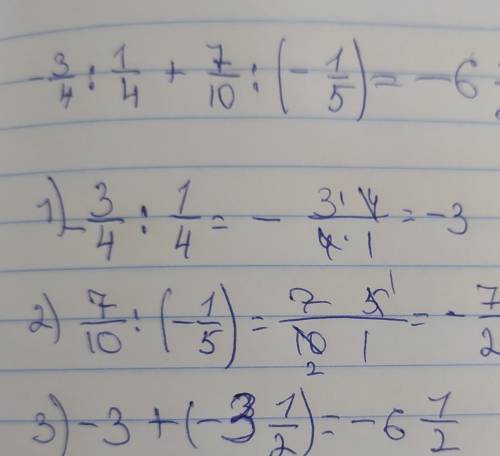 -3/4 : 1/4 + 7/10 : (-1/5) = -6
1) -3/4 : 1/4 = - 3·4/4·1 = -3
2) 7/10 : (-1/5) = 7 5 1/10 2 1 = -7/2
3) -3 + (-3 1/2) = -6 1/2